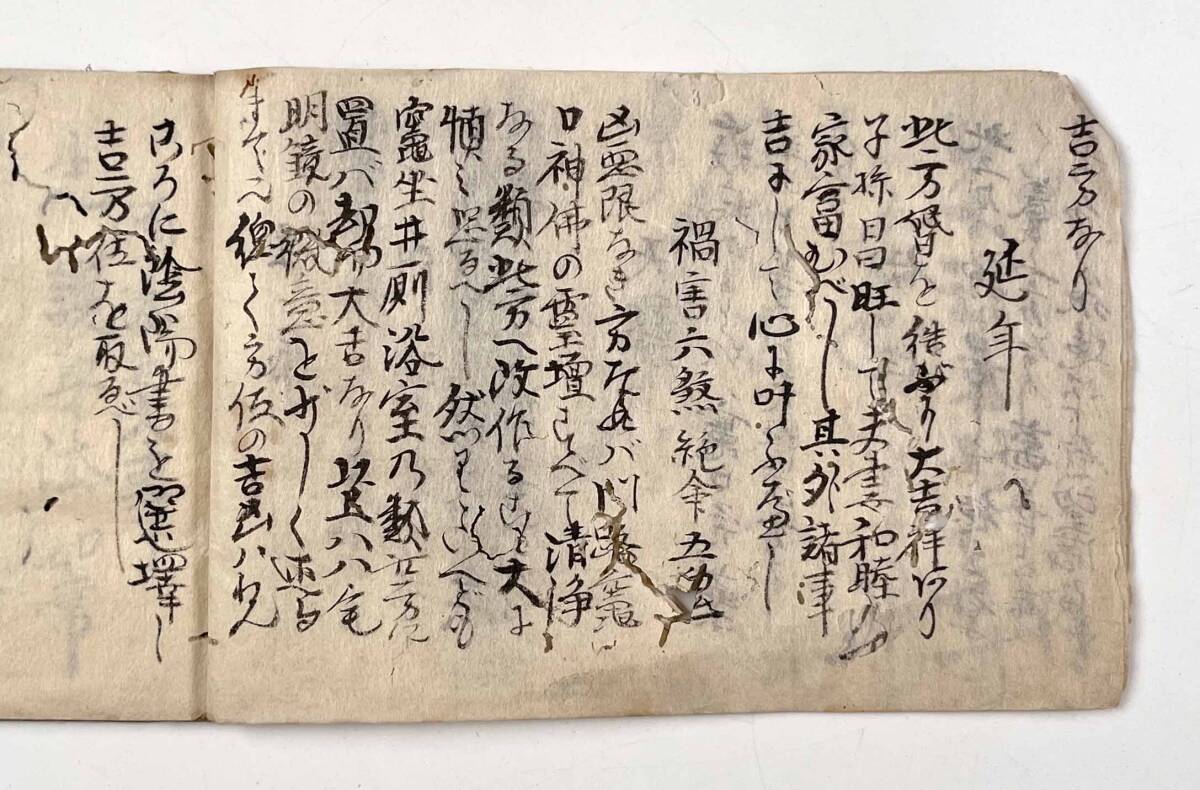 吉方なり
延年
此方修造を得バ大吉祥あり
子孫昌旺して夫妻和睦
家富むべし其外諸事
吉にして心に叶ふべし
禍害六煞絶命五鬼
凶無限なき方なれバ門路竈
口神佛の霊壇すべて清浄
なる類此方へ改作る事大に
慎み恐るべし然りといへども
竈坐井厠浴室乃類凶方に
置バ却而大吉なり是八宅
明鏡の微意を少しく述る
方位の吉凶ハ
ころに陰陽書を選擇し
吉方位を取べし